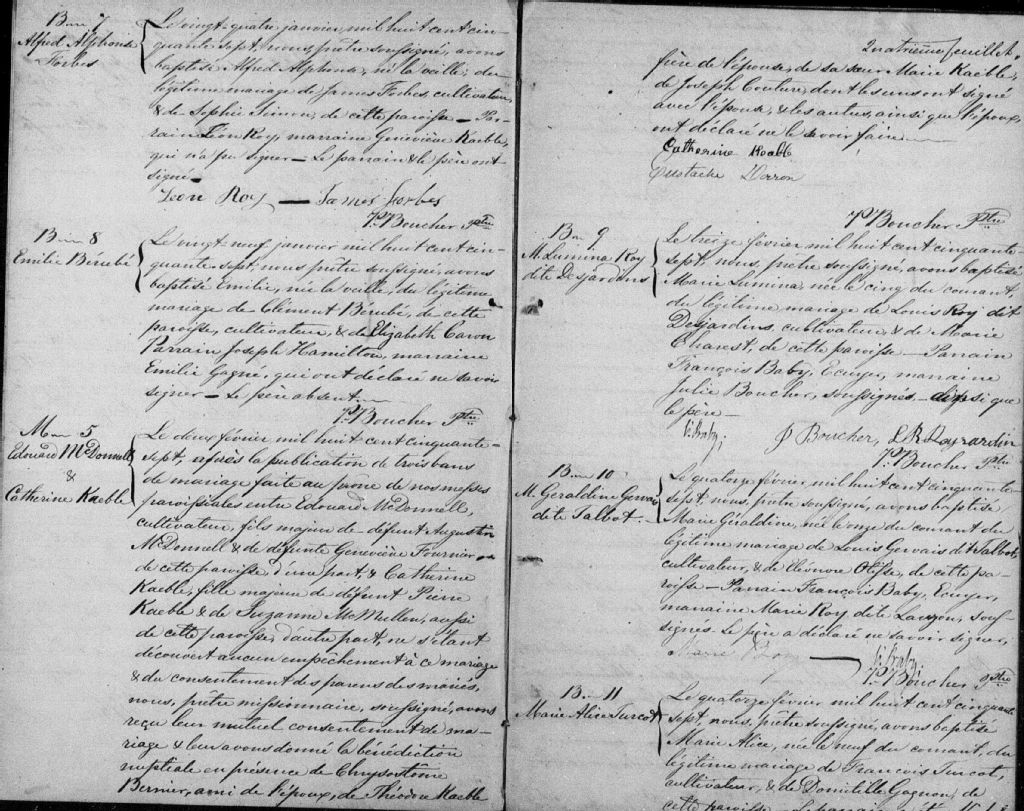 B—7
Alfred Alphonse
Forbes
Le vingt-quatre janvier mil huit cent cin-
quante sept, nous, prêtre soussigné, avons
baptisé Alfred Alphonse, né la veille, du
légitime mariage de James Forbes, cultivateur,
& de Sophie Simon, de cette paroisse — Pa-
rain Léon Roy, marraine Geneviève Kaeble,
qui n'a pu signer — Le parrain & le père ont
signé —
Leon Roy — James Forbes
P. Boucher Ptre
B—8
Emilie Bérubé
Le vingt neuf janvier mil huit cent cin-
quante-sept, nous prêtre soussigné, avons
baptisé Emilie, née la veille, du légitime
mariage de Clément Bérubé, de cette
paroisse, cultivateur, & de Elizabeth Caron
Parrain Joseph Hamilton, marraine
Emilie Gagné, qui ont déclaré ne savoir
signer — Le père absent. —
P. Boucher Ptre
M—5
Edouard McDonnell
&
Catherine Kaeble
Le deux février mil huit cent cinquante-
sept, après la publication de trois bans
de mariage faite au prone de nos messes
paroissiales entre Edouard McDonnell,
cultivateur, fils majeur de défunt Augustin
McDonnell & de défunte Geneviève Fournier
de cette paroisse, d'une part, & Catherine
Kaeble, fille majeure de défunt Pierre
Kaeble & de Suzanne McMullen, aussi
de cette paroisse, d'autre part, ne s'étant
découvert aucun empêchement à ce mariage
& du consentement des parens des mariés,
nous, prêtre missionnaire, soussigné, avons
reçu leur mutuel consentement de ma-
riage & leur avons donné la bénédiction
nuptiale en présence de Chrysostôme
Bernier, ami de l'époux, de Théodore Kaeble
Quatrième feuillet.
frère de l'épouse, de sa sœur Marie Kaeble,
de Joseph Couture, dont les uns ont signé
avec l'épouse, & les autres, ainsi que l'époux,
ont déclaré ne le savoir faire. —
Catherine Kaebl
Eustache Dorron
P. Boucher Ptre
B—9
M. Lumina Roy
dite Desjardins
Le treize février mil huit cent cinquante-
sept, nous, prêtre soussigné, avons baptisé
Marie Lumina, née le cinq du courant,
du légitime mariage de Louis Roy dit
Desjardins, cultivateur, & de Marie
Charest, de cette paroisse — Parrain
François Baby, Ecuyer, marraine
Julie Boucher, soussignés — ainsi que
le père —
F. Baby, J Boucher, LR Desjardin
P. Boucher Ptre
B—10
M. Géraldine Gervais
dite Talbot.
Le quatorze février mil huit cent cinquante-
sept, nous, prêtre soussigné, avons baptisé
Marie Géraldine, née le onze du courant du
légitime mariage de Louis Gervais dit Talbot,
cultivateur, & de Eléonore Olisse, de cette pa-
roisse — Parrain François Baby, Ecuyer,
marraine Marie Roy dite Lauzon, sous-
signés. Le père a déclaré ne savoir signer,
Marie Roy — F. Baby.
P. Boucher Ptre
B—11
Marie Alice Turcot
Le quatorze février mil huit cent cinquante
sept, nous, prêtre soussigné, avons baptisé
Marie Alice, née le neuf du courant, du
légitime mariage de François Turcot,
cultivateur, & de Domitille Gagnon, de
cette paroisse